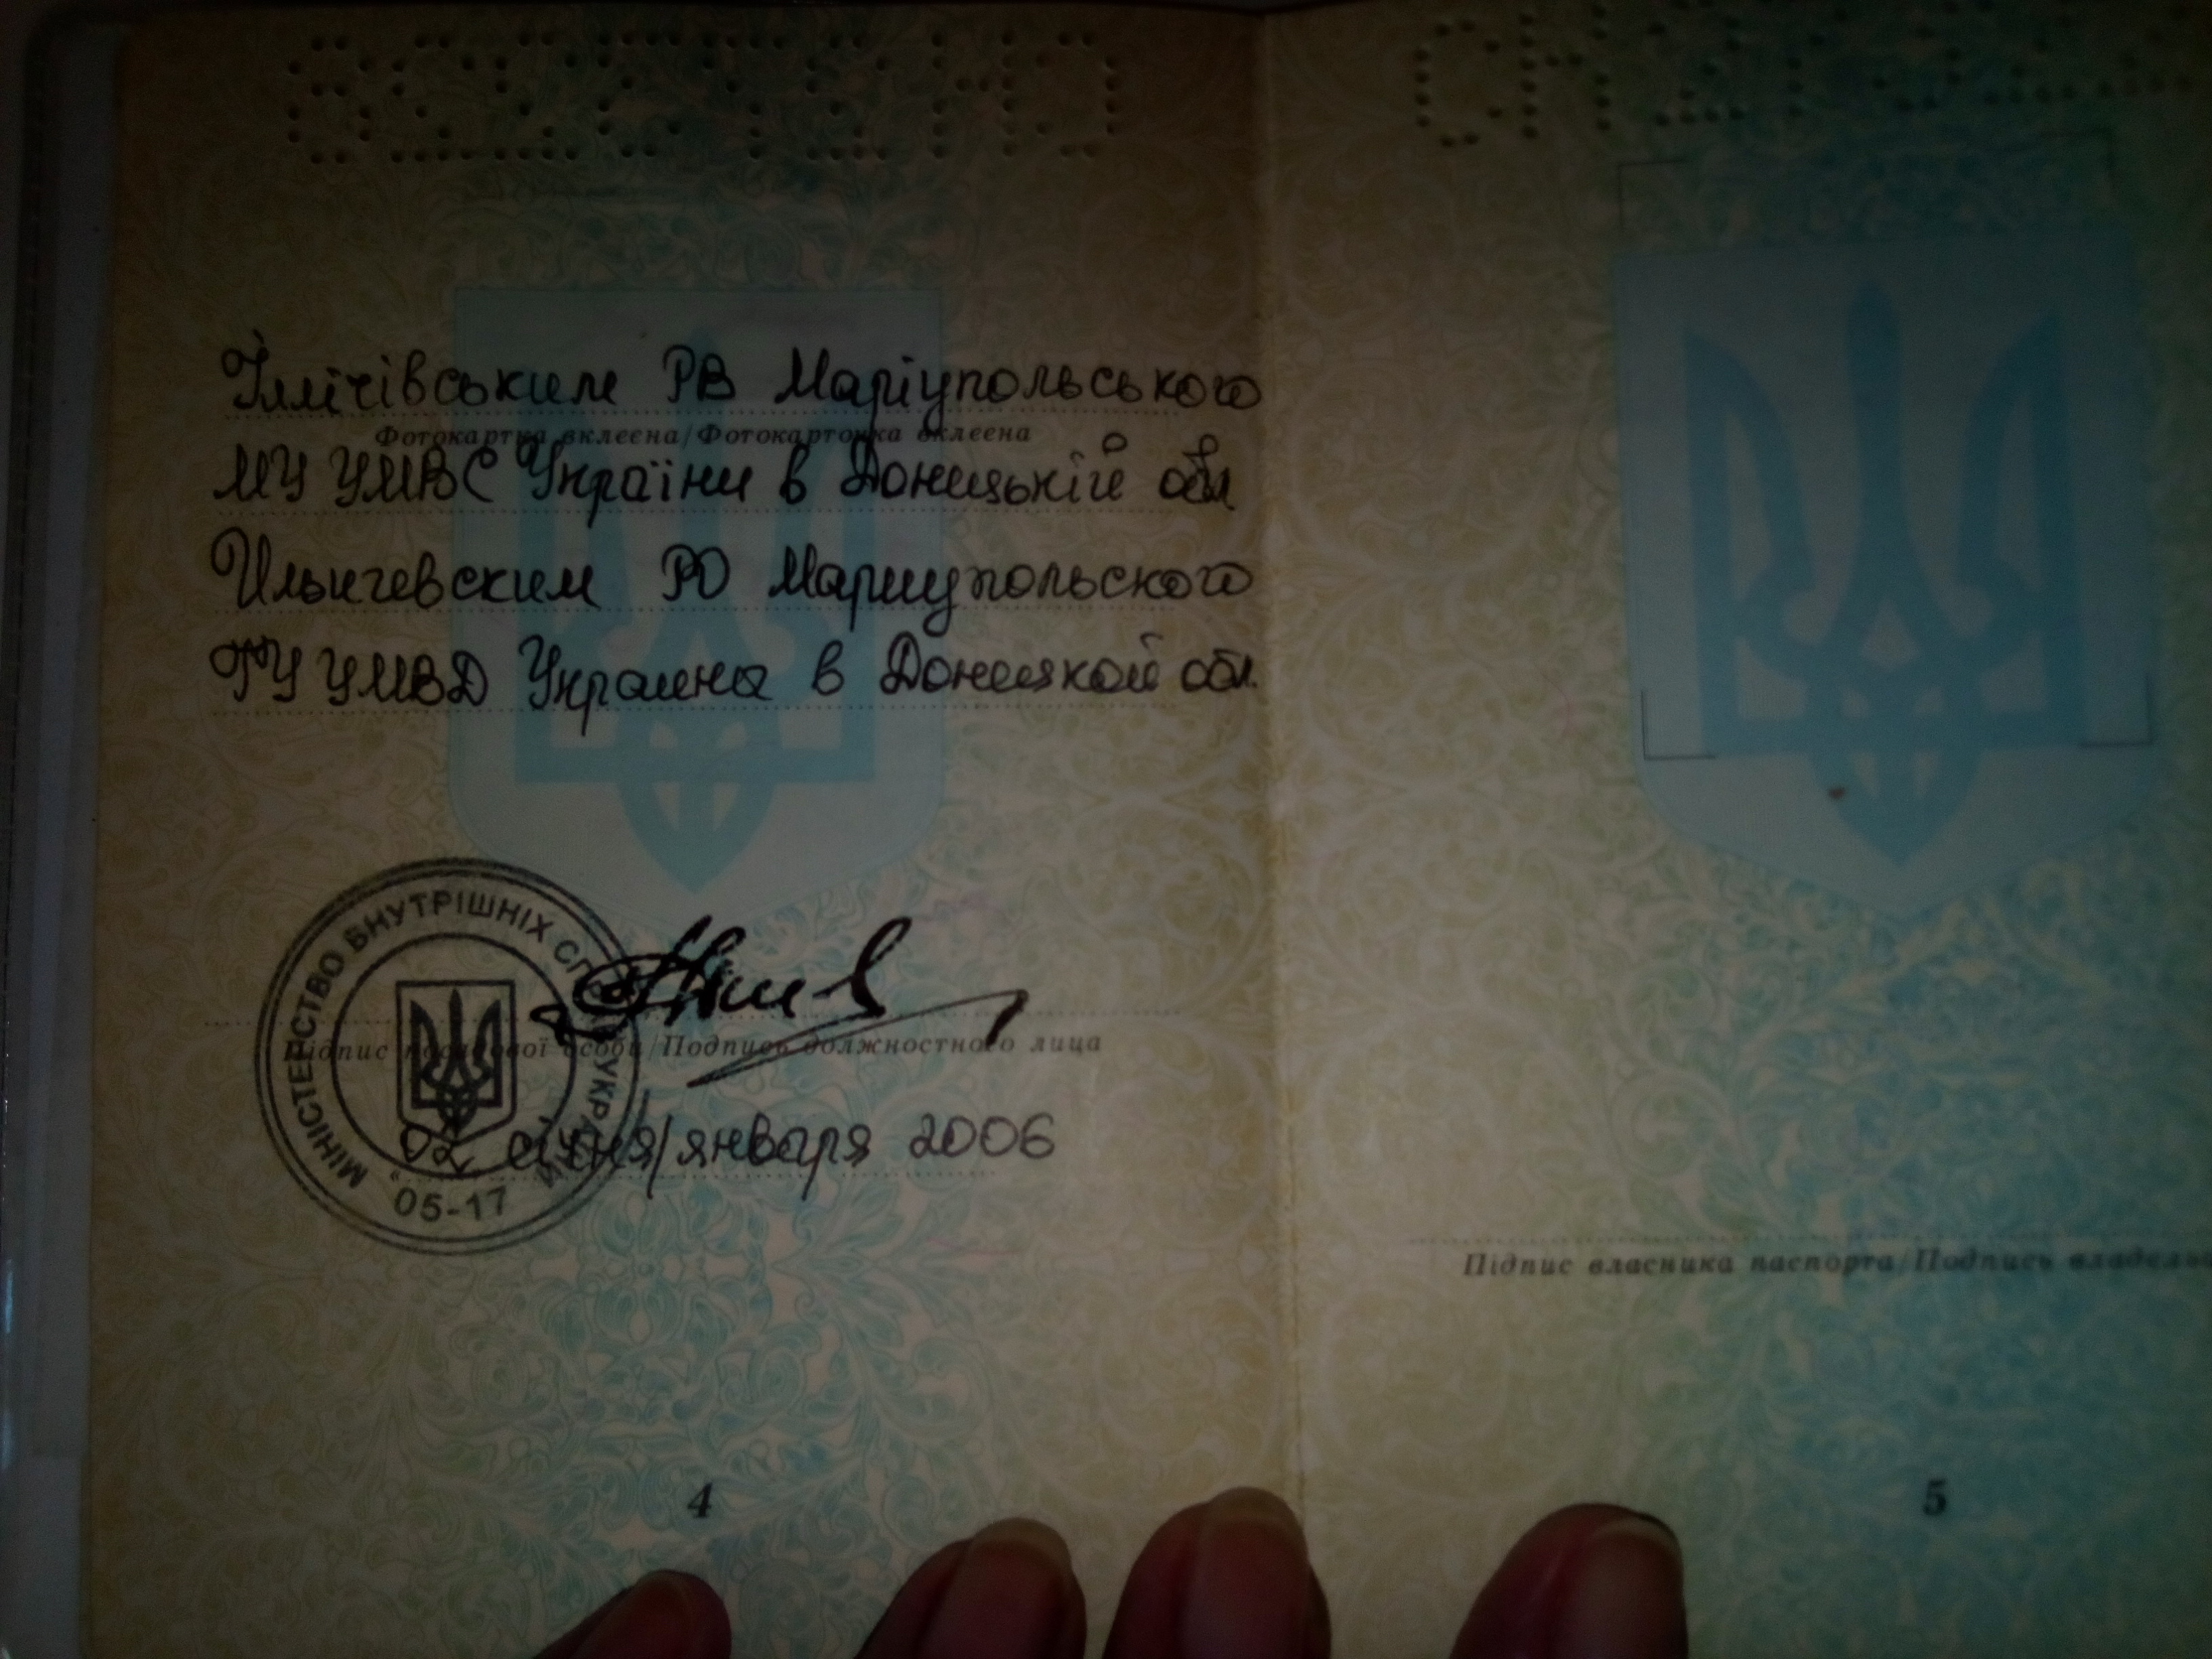 Іллічівським РВ Маріупольського
Фотокартка вклеєна/Фотокарточка вклеена
МУ УМВС України в Донецькій обл
Ильичевским РО Мариупольского
ГУ УМВД Украина в Донецкой обл.
МІНІСТЕРСТВО ВНУТРІШНІХ УКРАЇНИ
05-17
Підпис посадової особи/Подпись должностного лица
02 січня/января 2006
4
СН
Підпис власника паспорта/Подпись
5